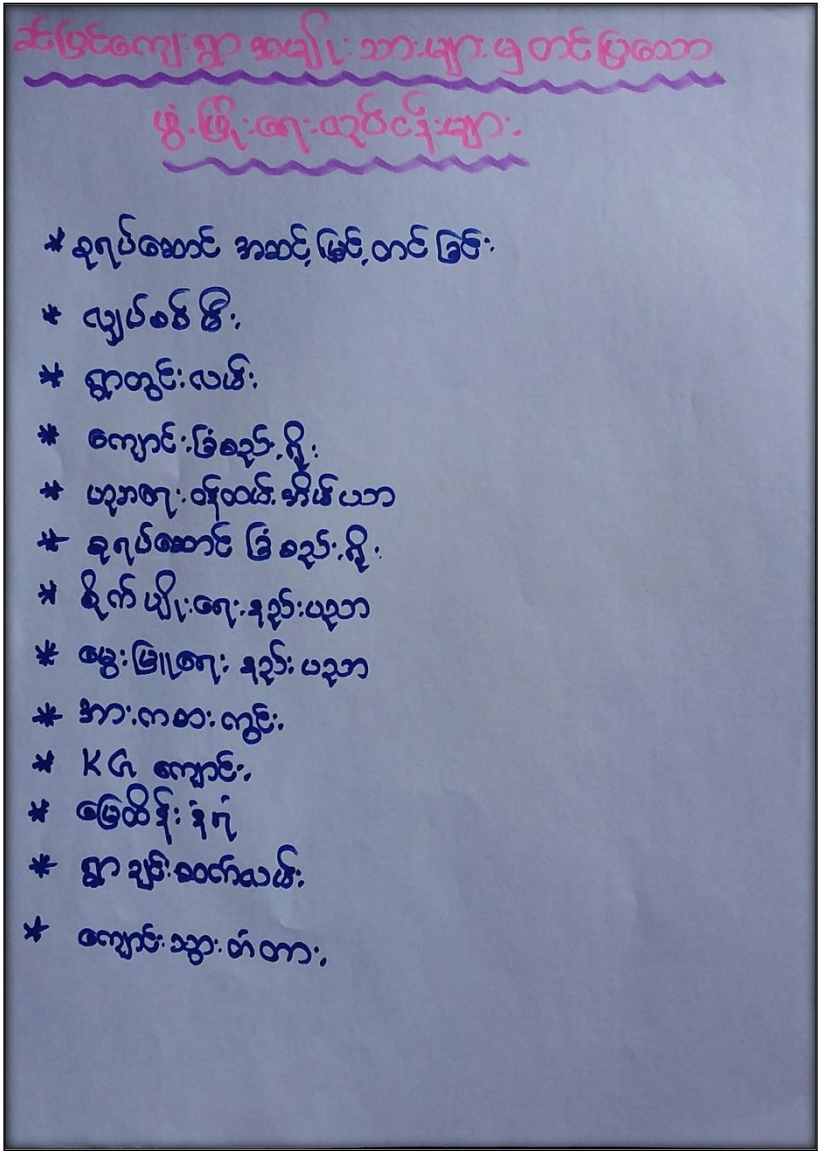 ခင်ပြင်ကျေးရွာ အမျိုးသားများမှ တင်ပြသော
ဖွံ့ဖြိုးရေးလုပ်ငန်းများ
* ခုရပ်ဆောင် အဆင့်မြှင့်တင်ခြင်း
* လျှပ်စစ်မီး
* ရွာတွင်းလမ်း
* ကျောင်းခြံစည်းရိုး
* ပညာရေးဝန်ထမ်းအိမ်ယာ
* ခုရပ်ဆောင် ခြံစည်းရိုး
* စိုက်ပျိုးရေးနည်းပညာ
* မွေးမြူရေး နည်းပညာ
* အားကစားကွင်း
* KG ကျောင်း
* မြေထိန်းနံရံ
* ရွာချင်းဆက်လမ်း
* ကျောင်းသွားတံတား